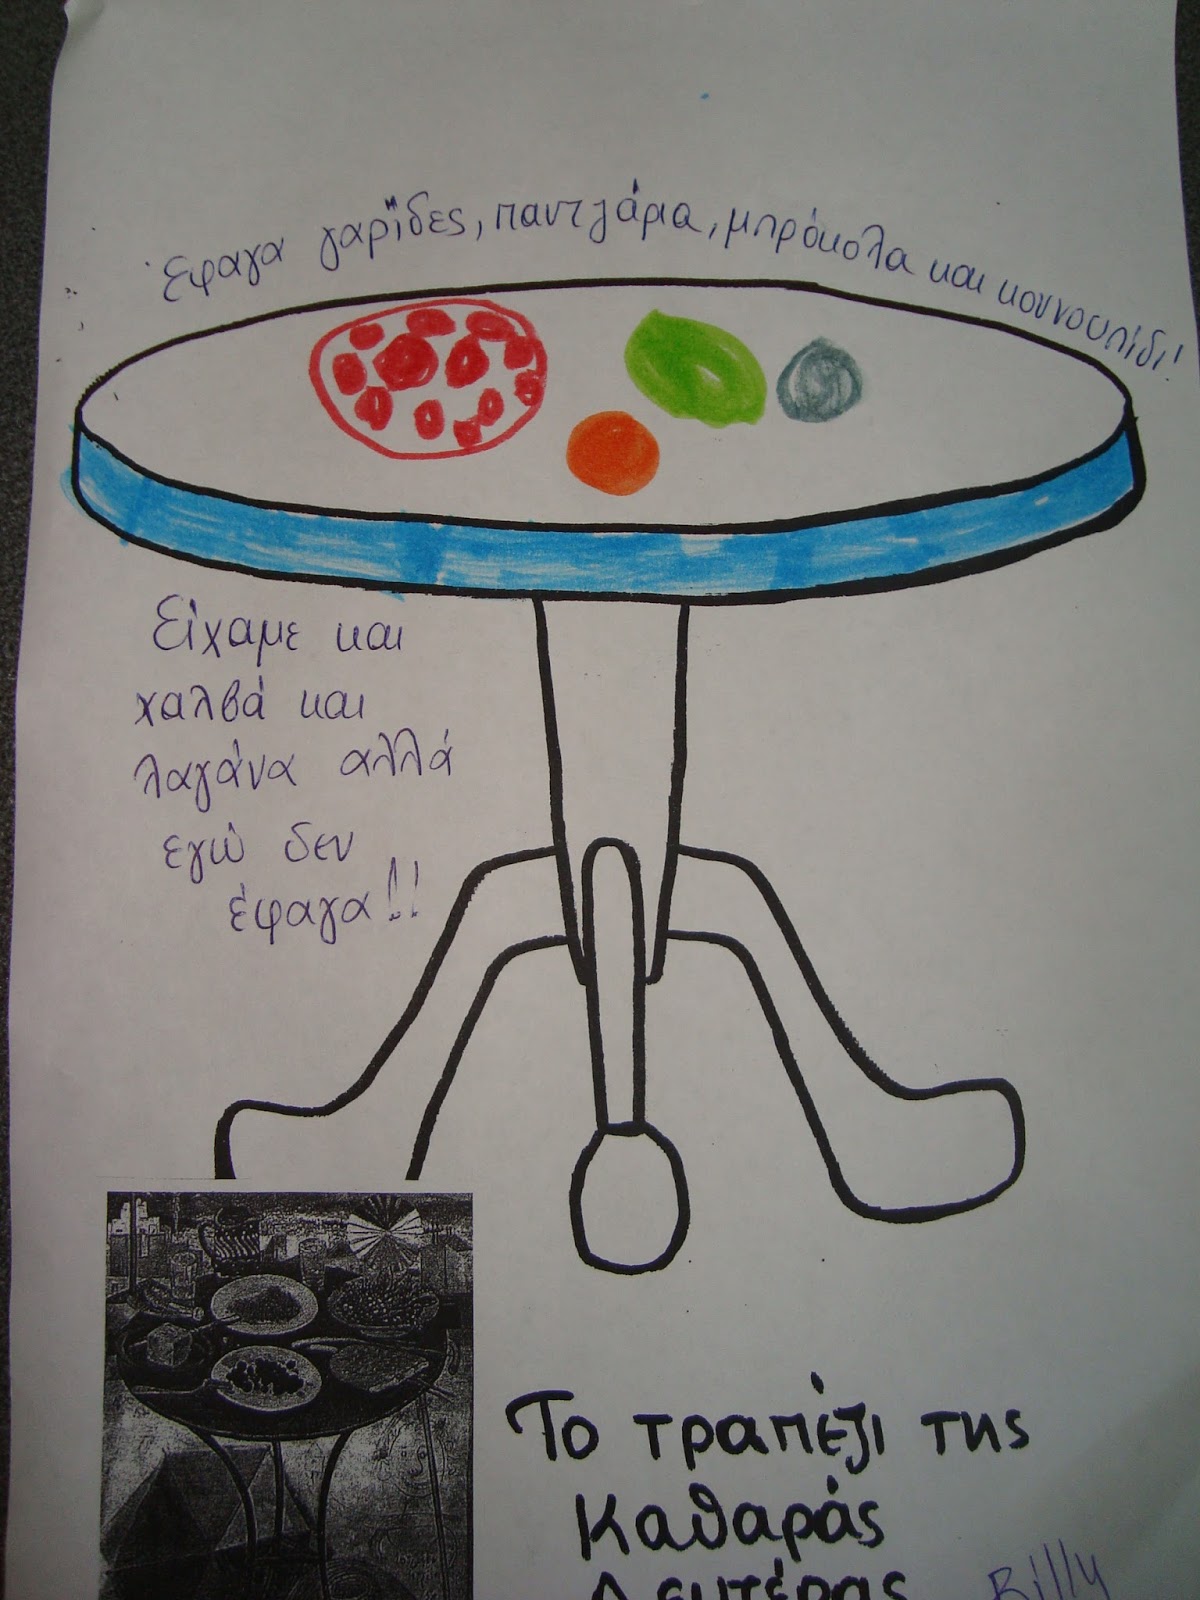 Έφαγα γαρίδες, παντζάρια, μπρόκολα και κουνουπίδι!
Είχαμε και
χαλβά και
λαγάνα αλλά
εγώ δεν
έφαγα!!
Το τραπέζι της
Καθαράς
Δευτέρας
Billy